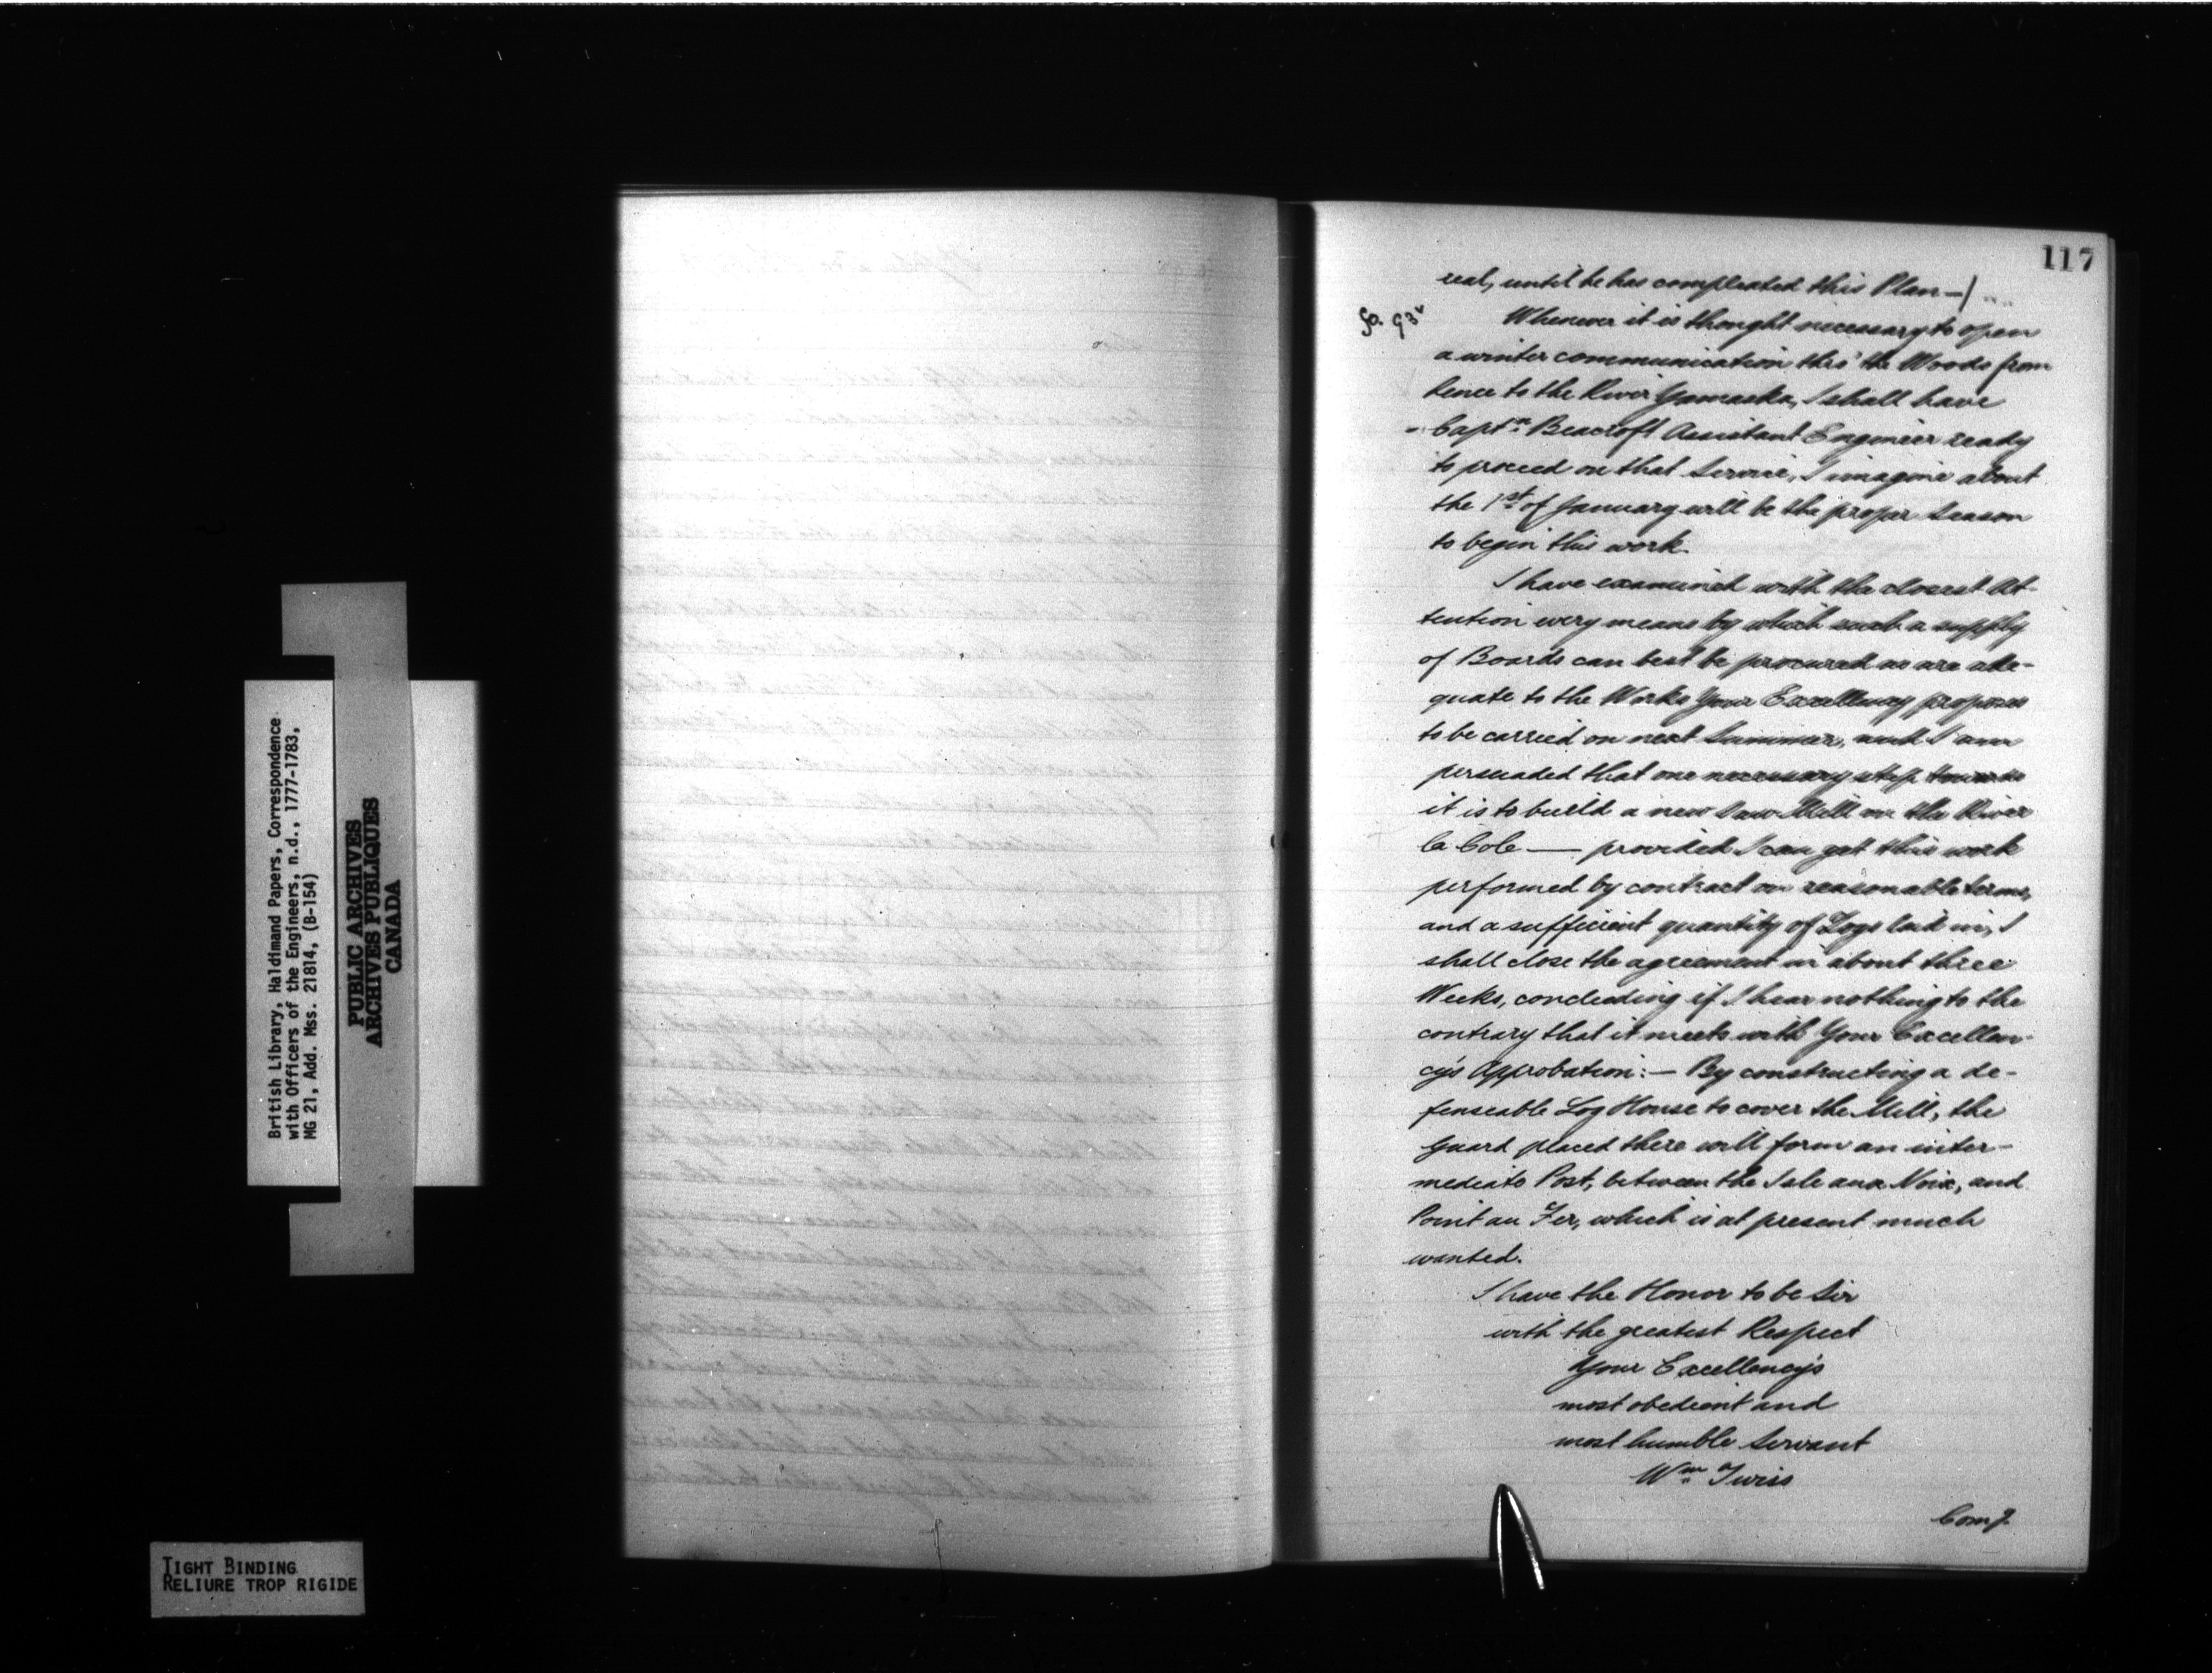 117
real, until he has compleated this Plan —/
fo. 93v
Whenever it is thought necessary to open
a winter communication thro' the Woods from
hence to the River Yamaska, I shall have
Captn. Beacroft Assistant Engineer ready
to proceed on that Service, I imagine about
the 1st of January will be the proper Season
to begin this work.
I have examined with the closest At-
tention every means by which such a supply
of Boards can best be procured as are ade-
quate to the Works Your Excellency proposes
to be carried on next Summer, and I am
persuaded that one necessary step towards
it is to build a new Saw Mill on the River
la Cole — provided I can get this work
performed by contract on reasonable terms,
and a sufficient quantity of Logs laid in, I
shall close the agreement in about three
Weeks, concluding if I hear nothing to the
contrary that it meets with Your Excellen-
cy's Approbation:— By constructing a de-
fenseable Log House to cover the Mill, the
Guard placed there will form an inter-
mediate Post, between the Isle aux Noix, and
Point au Fer, which is at present much
wanted.
I have the Honor to be Sir
with the greatest Respect
Your Excellency's
most obedient and
most humble Servant
Wm Twiss
British Library, Haldimand Papers, Correspondence
with Officers of the Engineers, n.d., 1777-1783,
MG 21, Add. Mss. 21814, (B-154)
PUBLIC ARCHIVES
ARCHIVES PUBLIQUES
CANADA
TIGHT BINDING
RELIURE TROP RIGIDE